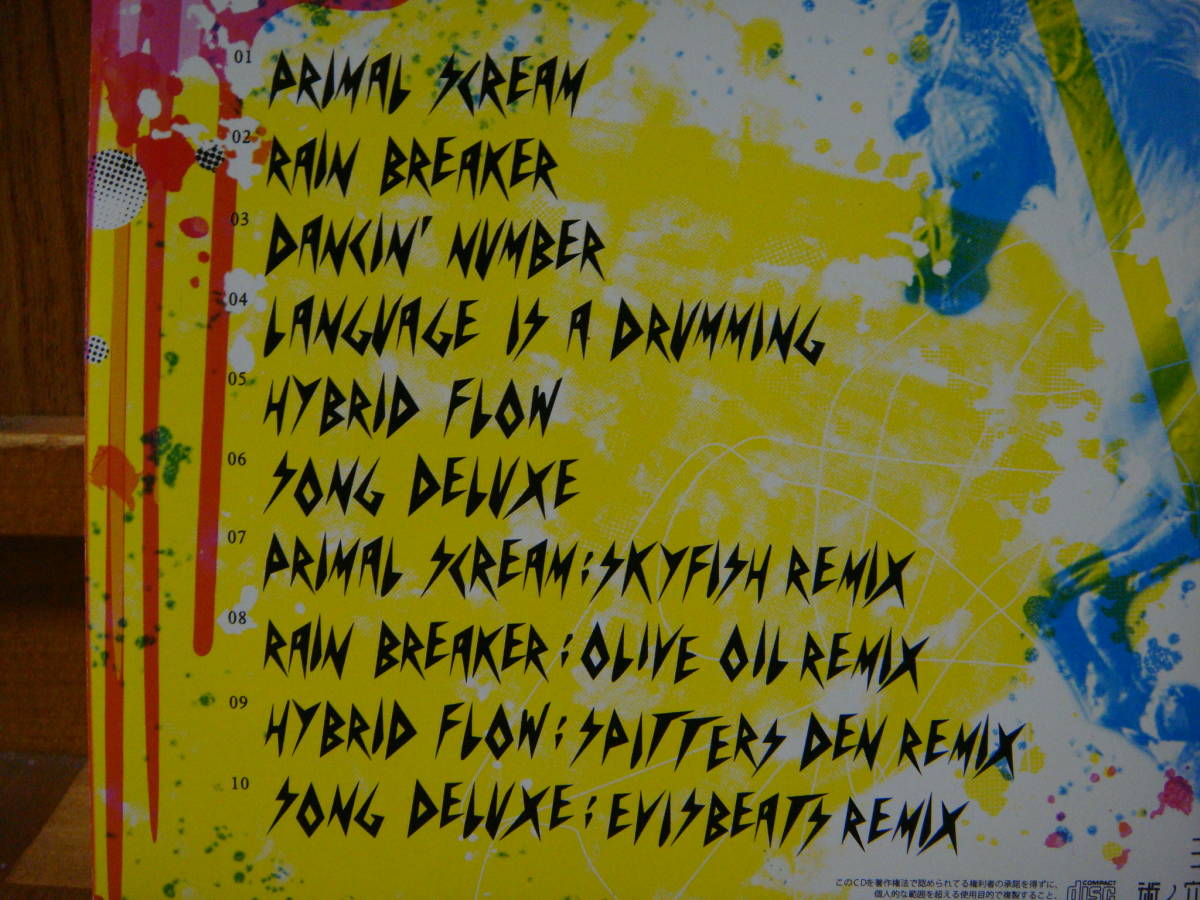 01 PRIMAL SCREAM
02 RAIN BREAKER
03 DANCIN' NUMBER
04 LANGUAGE IS A DRUMMING
05 HYBRID FLOW
06 SONG DELUXE
07 PRIMAL SCREAM:SKYFISH REMIX
08 RAIN BREAKER:OLIVE OIL REMIX
09 HYBRID FLOW:SPITTERS DEN REMIX
10 SONG DELUXE:EVISBEATS REMIX
このCDを著作権法で認められてる権利者の承諾を得ずに、
個人的な範囲を超える使用目的で複製すること、
COMPACT
disc
術ノ